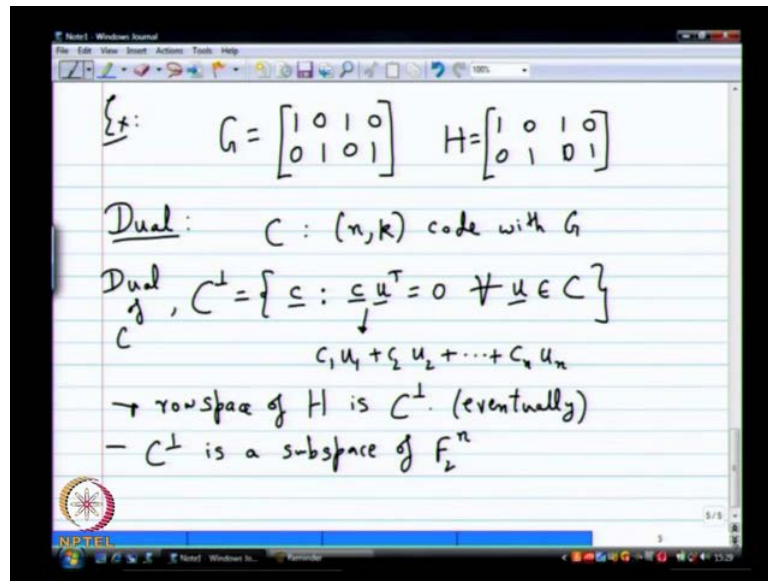 Note1 - Windows Journal
File Edit View Insert Actions Tools Help
100%
Ex: G = [1 0 1 0 H = [1 0 1 0
0 1 0 1] 0 1 0 1]
Dual: C : (n,k) code with G
Dual of C, C⊥ = { c : c uᵀ = 0 ∀ u ∈ C }
↓
c₁u₁ + c₂u₂ + ··· + cₙuₙ
→ rowspace of H is C⊥. (eventually)
– C⊥ is a subspace of F₂ⁿ
5/5
5
NPTEL
Note1 - Windows Jo... Reminder
15:29